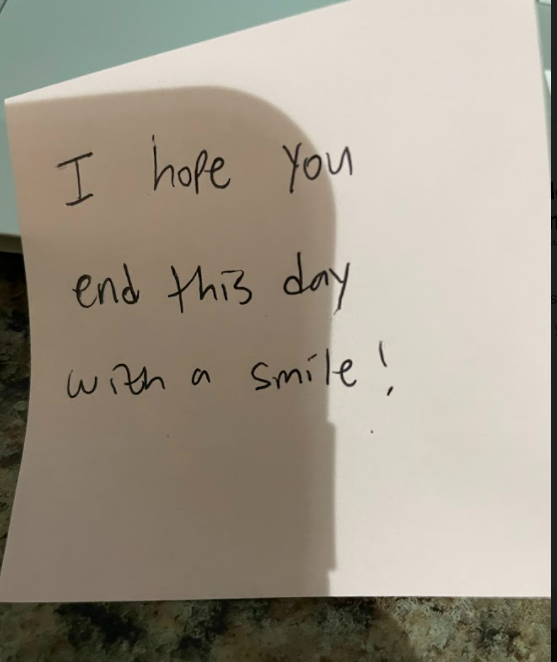 I hope you
end this day
with a smile!